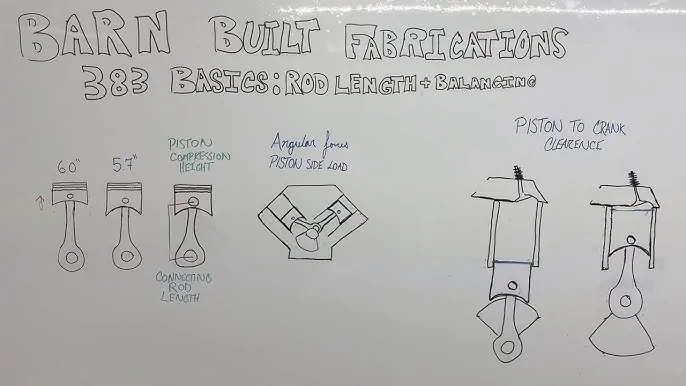 BARN BUILT FABRICATIONS
383 BASICS: ROD LENGTH + BALANCING
6.0" 5.7"
PISTON
COMPRESSION
HEIGHT
CONNECTING
ROD
LENGTH
Angular forces
PISTON SIDE LOAD
PISTON TO CRANK
CLEARENCE